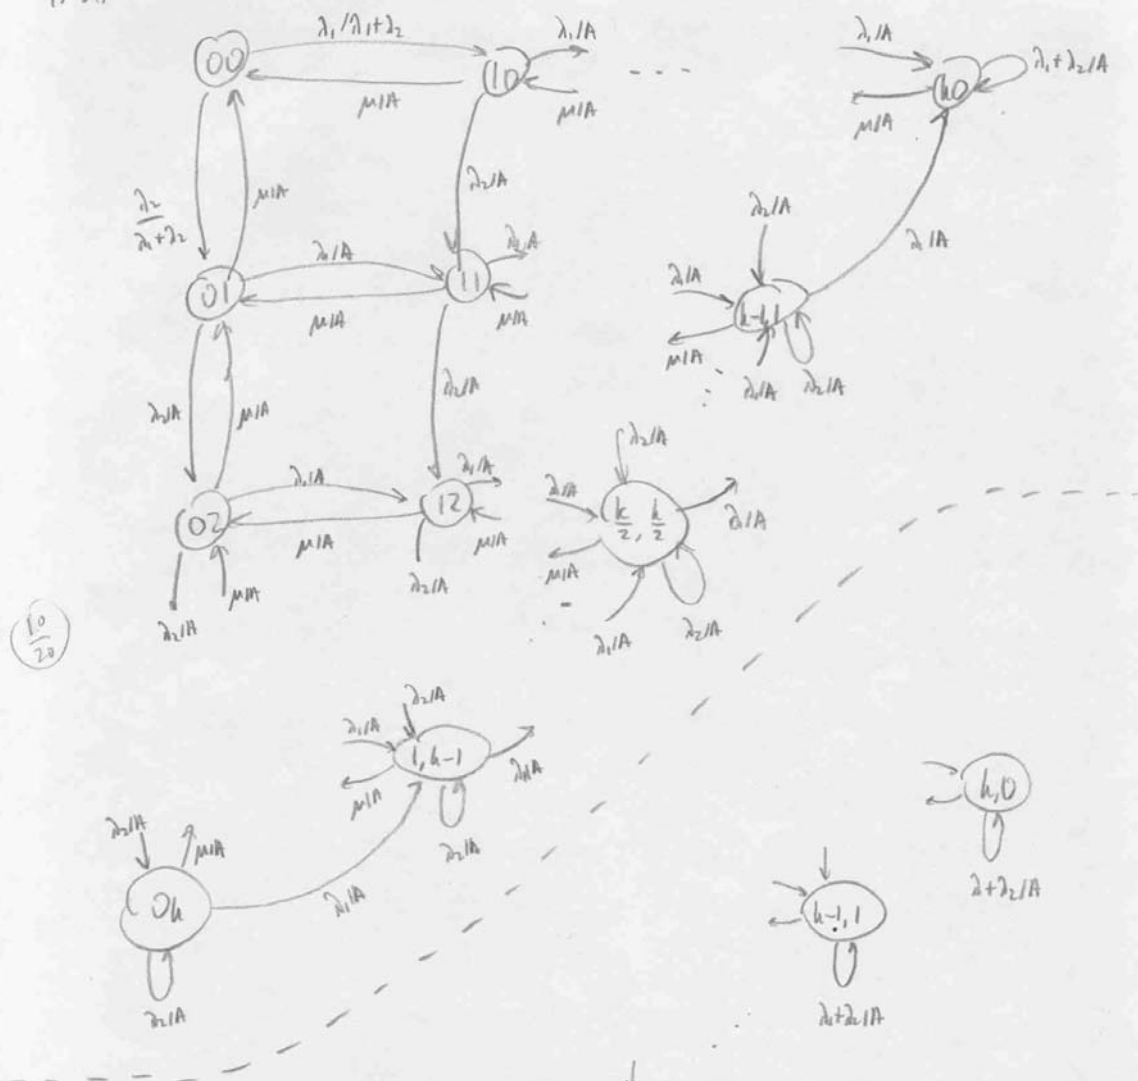 00
λ₁/λ₁+λ₂
10
λ₁/A
μ/A
μ/A
- - -
λ₁/A
k0
λ₁+λ₂/A
μ/A
λ₂
λ₁+λ₂
μ/A
λ₂/A
λ₁/A
01
λ₁/A
11
λ₁/A
μ/A
μ/A
λ₂/A
λ₁/A
k-1,1
μ/A
λ₁/A
λ₂/A
λ₂/A
μ/A
λ₂/A
λ₁/A
02
λ₁/A
12
λ₁/A
μ/A
μ/A
λ₂/A
μ/A
λ₂/A
λ₂/A
λ₁/A
k/2, k/2
λ₁/A
μ/A
λ₁/A
λ₂/A
10/20
λ₂/A
λ₁/A
1,k-1
λ₁/A
μ/A
λ₂/A
λ₂/A
μ/A
0k
λ₁/A
λ₂/A
k,0
λ+λ₂/A
k-1,1
λ₁+λ₂/A